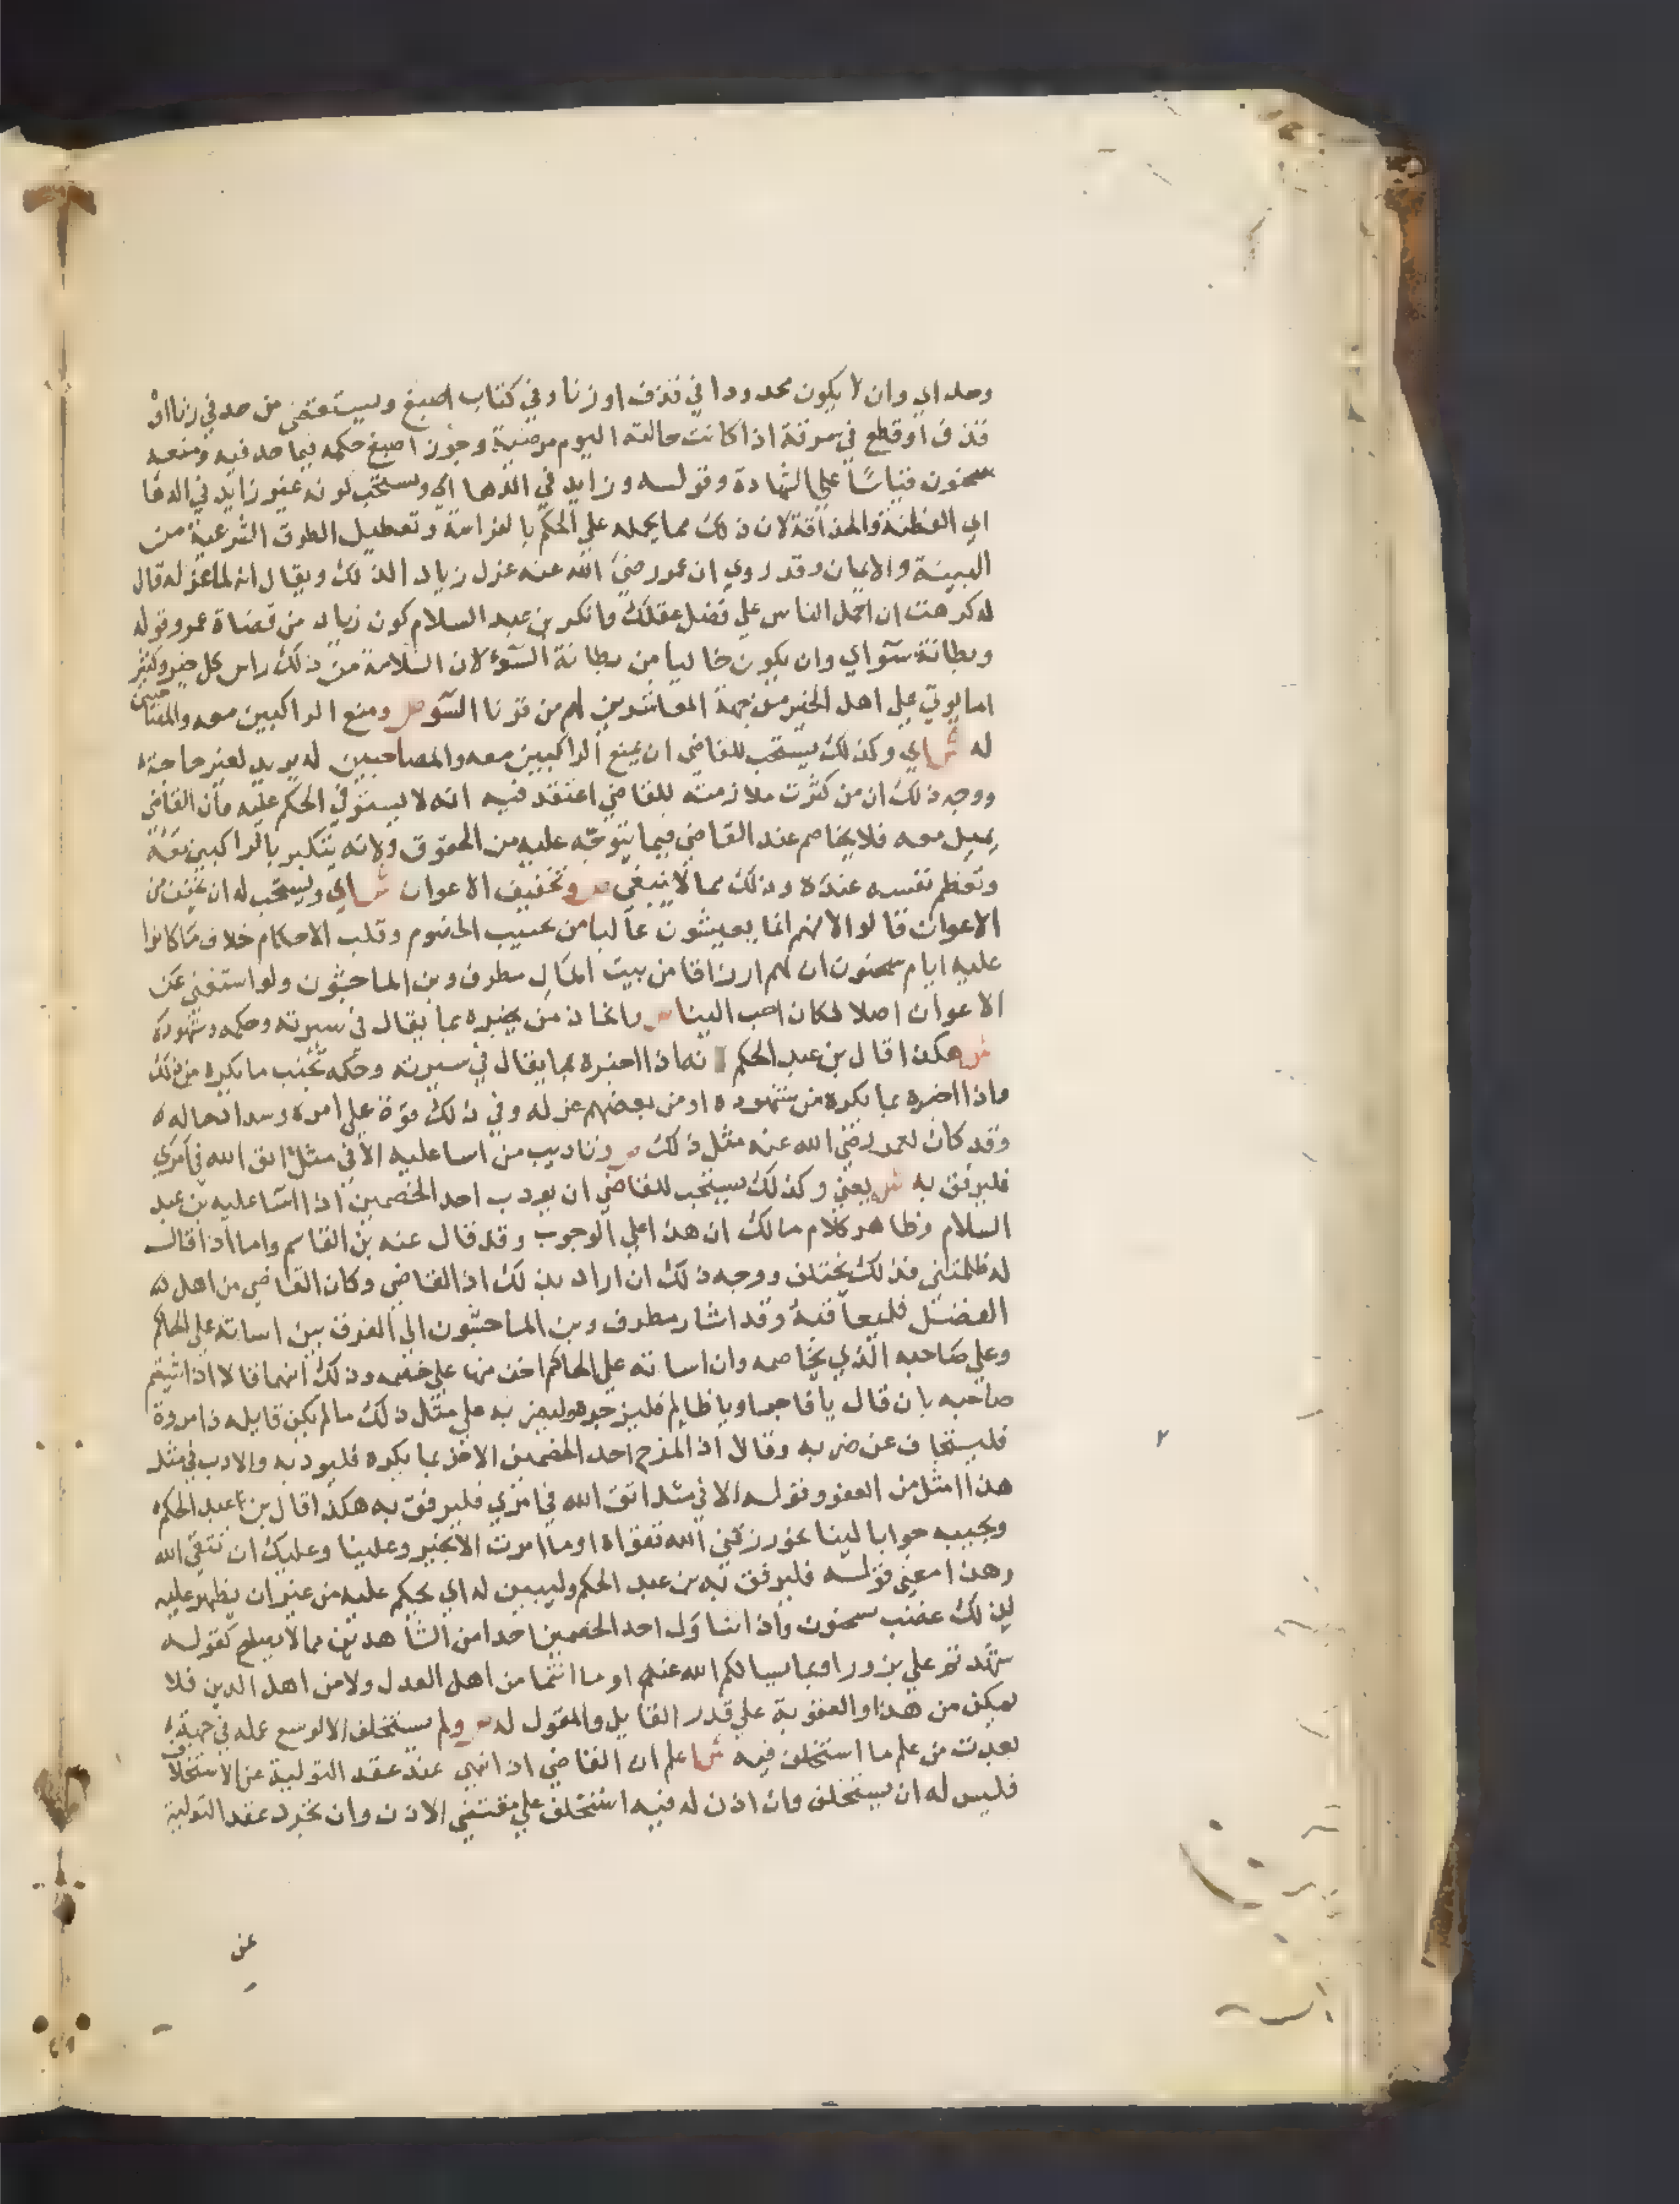 وحد اي وان لا يكون محدودا في قذف او زنا وفي كتاب اصبغ ويستقضى من حد في زنا او
قذف او قطع في سرقة اذا كانت حالته اليوم مرضية وجوز اصبغ حكمه فيما حد فيه ومنعه
سحنون قياسًا علي الشهادة وقوله وزايد في الدها اي ويستحب كونه غير زايد في الدها
اي الفطنة والحذاقة لان ذلك مما يحمله علي الحكم بالفراسة وتعطيل الطرق الشرعية من
البينة والايمان وقد روي ان عمر رضي الله عنه عزل زياد الذلك ويقال انه لما عزله قال
له كرهت ان احمل الناس علي فضل عقلك وانكر بن عبد السلام كون زياد من قضاة عمر وقوله
وبطانة سوء اي وان يكون خاليا من بطانة السوء لان السلامة من ذلك راس كل خير وكثير
اما يوتي علي اهل الخير من جهة المعاشرين لهم من قرنا السو ص ومنع الراكبين معه والمصاحبين
له ش اي وكذلك يستحب للقاضي ان يمنع الراكبين معه والمصاحبين له يريد لغير حاجة
ووجه ذلك ان من كثرت ملازمته للقاضي اعتقد فيه انه لا يستوفي الحكم عليه فان القاضي
يميل معه فلا يخاصم عند القاضي فيما يتوجه عليه من الحقوق ولانه يتكبر بالراكبين معه
وتعظم نفسه عنده وذلك مما لا ينبغي ص وتخفيف الاعوان ش اي ويستحب له ان يخفف من
الاعوان قالوا لانهم انما يعيشون غالبا من عسيب الخصوم وقلب الاحكام خلاف ما كانوا
عليه ايام سحنون ان لهم ارزاقا من بيت المال مطرف وبن الماجشون ولو استغني عن
الاعوان اصلا لكان احب الينا ص واتخاذ من يخبره بما يقال في سيرته وحكمه وشهوده
ش هكذا قال بن عبد الحكم انه اذا اخبره بما يقال في سيرته وحكمه تجنب ما يكره من ذلك
واذا اخبره بما يكره من شهوده او من بعضهم عزله وفي ذلك قوة علي امره وسدا لحاله
وقد كان لعمر رضي الله عنه مثل ذلك ص وتاديب من اسا عليه الا في مثل اتق الله في امري
فليرفق به ش يعني وكذلك يستحب للقاضي ان يودب احد الخصمين اذا اسا عليه بن عبد
السلام وظاهر كلام مالك ان هذا علي الوجوب وقد قال عنه بن القاسم واما اذا قال
له ظلمتني فذلك يختلف ووجه ذلك ان اراد بذلك اذا القاضي وكان القاضي من اهل
الفضل فليعاقبه وقد اشار مطرف وبن الماجشون الي الفرق بين اساته علي الحاكم
وعلي صاحبه الذي يخاصمه وان اساته علي الحاكم اخف منها علي خصمه وذلك انهما قالا اذا شتم
صاحبه بان قال يا فاجر او يا ظالم فليزجره وليضربه علي مثل ذلك ما لم يكن قايله ذا مروة
فليستجاف عن ضربه وقالا اذ المزح احد الخصمين الاخر بما يكره فليودبه والادب في مثل
هذا امثل من العفو وقوله الا في مثل اتق الله في امري فليرفق به هكذا قال بن عبد الحكم
ويجيبه جوابا لينا نحو رزقني الله تقواه او ما امرت الا بخير وعلينا وعليك ان نتقي الله
وهذا معني قوله فليرفق به بن عبد الحكم وليبين له اي يحكم عليه من غير ان يظهر عليه
لذلك غضب سحنون واذا تناول احد الخصمين احدا من الشاهدين مما لا يصلح كقوله
شهدتم علي بزور او بما يسالكم الله عنه او ما انتما من اهل العدل ولا من اهل الدين فلا
يمكن من هذا والعقوبة علي قدر القايل والمقول له ص ولم يستخلف الا لوسع عمله في جهة
بعدت من علم ما استخلف فيه ش اعلم ان القاضي اذا نهي عند عقد التولية عن الاستخلاف
فليس له ان يستخلف وان اذن له فيه استخلف علي مقتضي الاذن وان تجرد عقد التولية
عن
٢